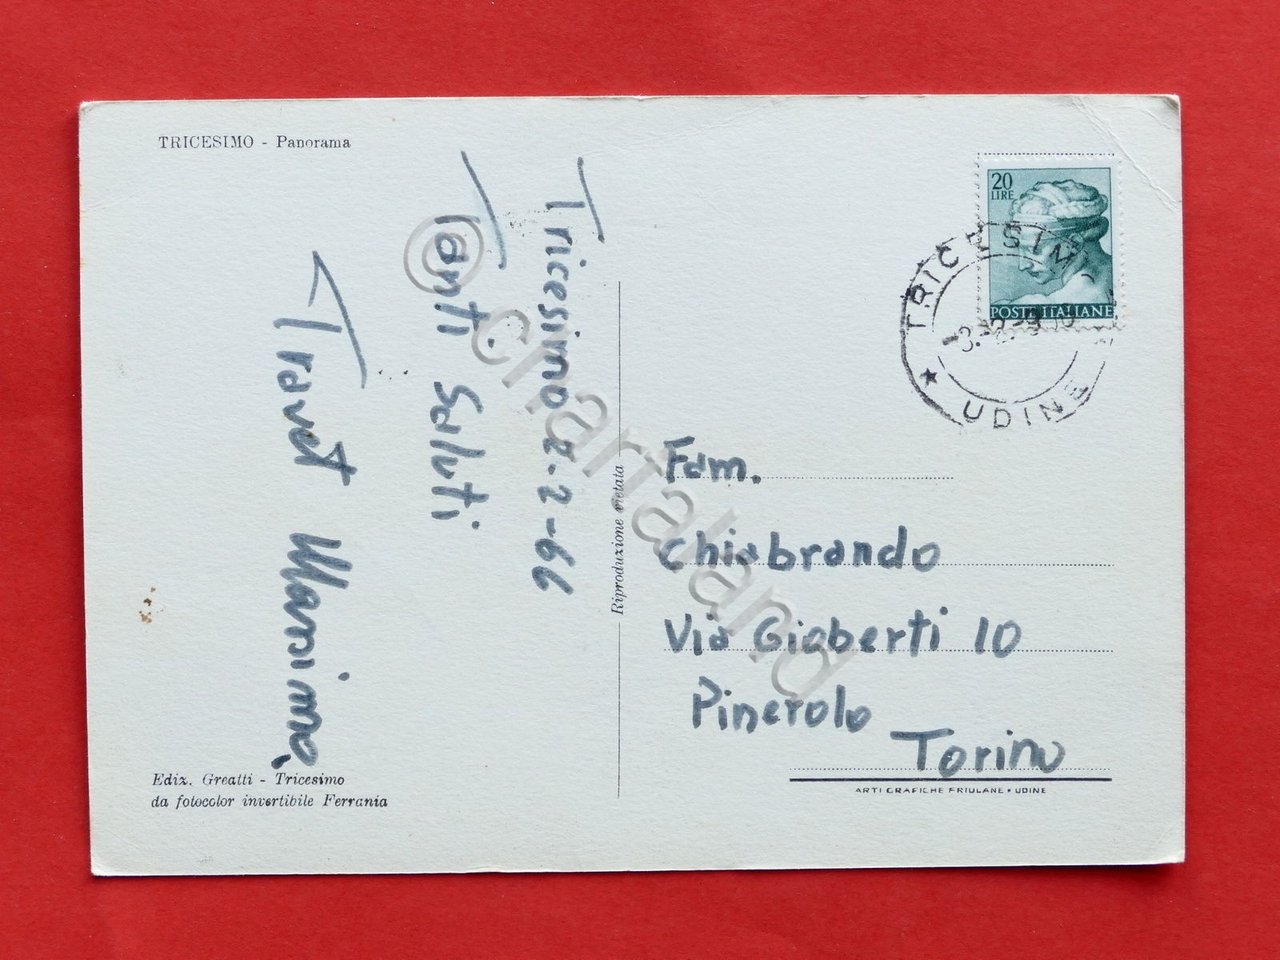 TRICESIMO - Panorama
Tricesimo 2-2-66
Tanti Saluti
Travet Massimo
Ediz. Greatti - Tricesimo
da fotocolor invertibile Ferrania
Riproduzione vietata
20
LIRE
POSTE ITALIANE
TRICESIMO
UDINE
Fam.
Chiabrando
Via Gioberti 10
Pinerolo
Torino
ARTI GRAFICHE FRIULANE • UDINE
© chartaland